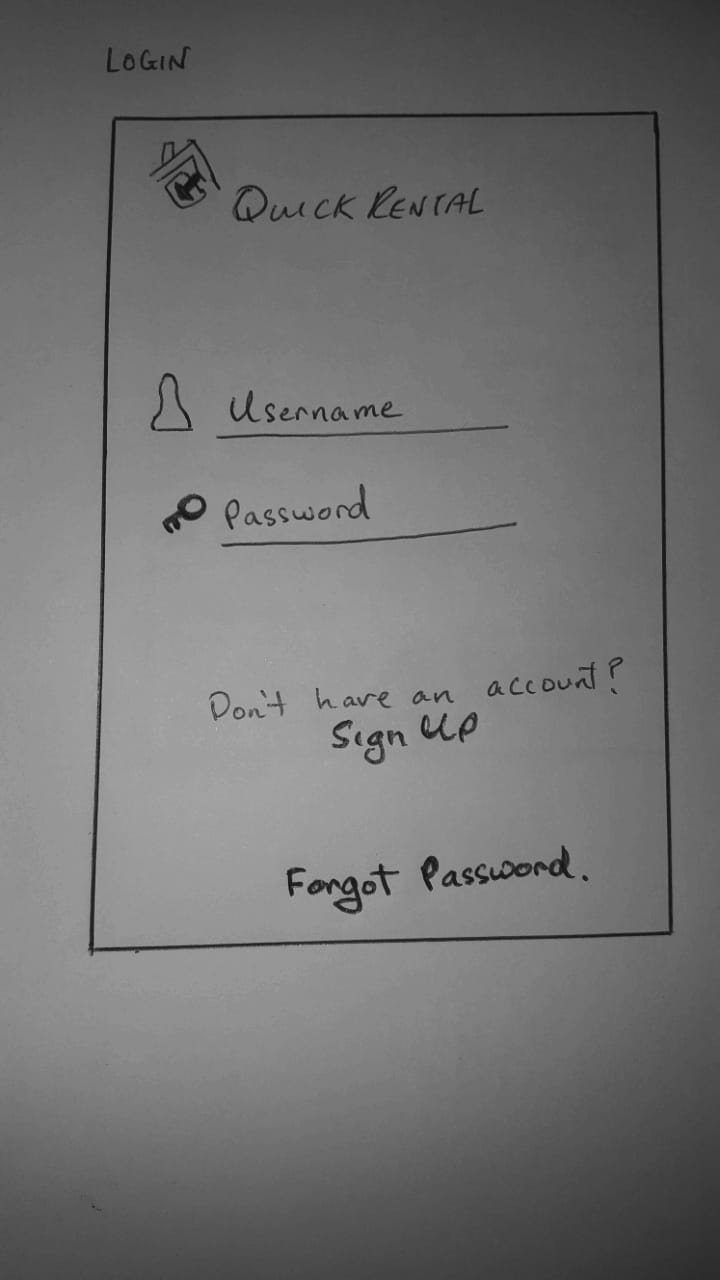 LOGIN
QUICK RENTAL
Username
Password
Don't have an account?
Sign Up
Forgot Password.